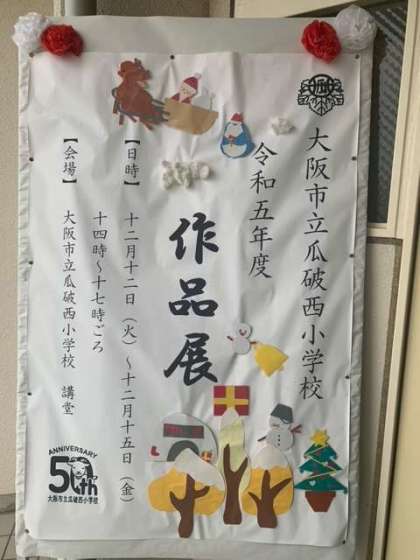 大阪市立瓜破西小学校
令和五年度
作品展
【日時】 十二月十二日（火）～十二月十五日（金）
十四時～十七時ごろ
【会場】 大阪市立瓜破西小学校 講堂
ANNIVERSARY
50th
大阪市立瓜破西小学校